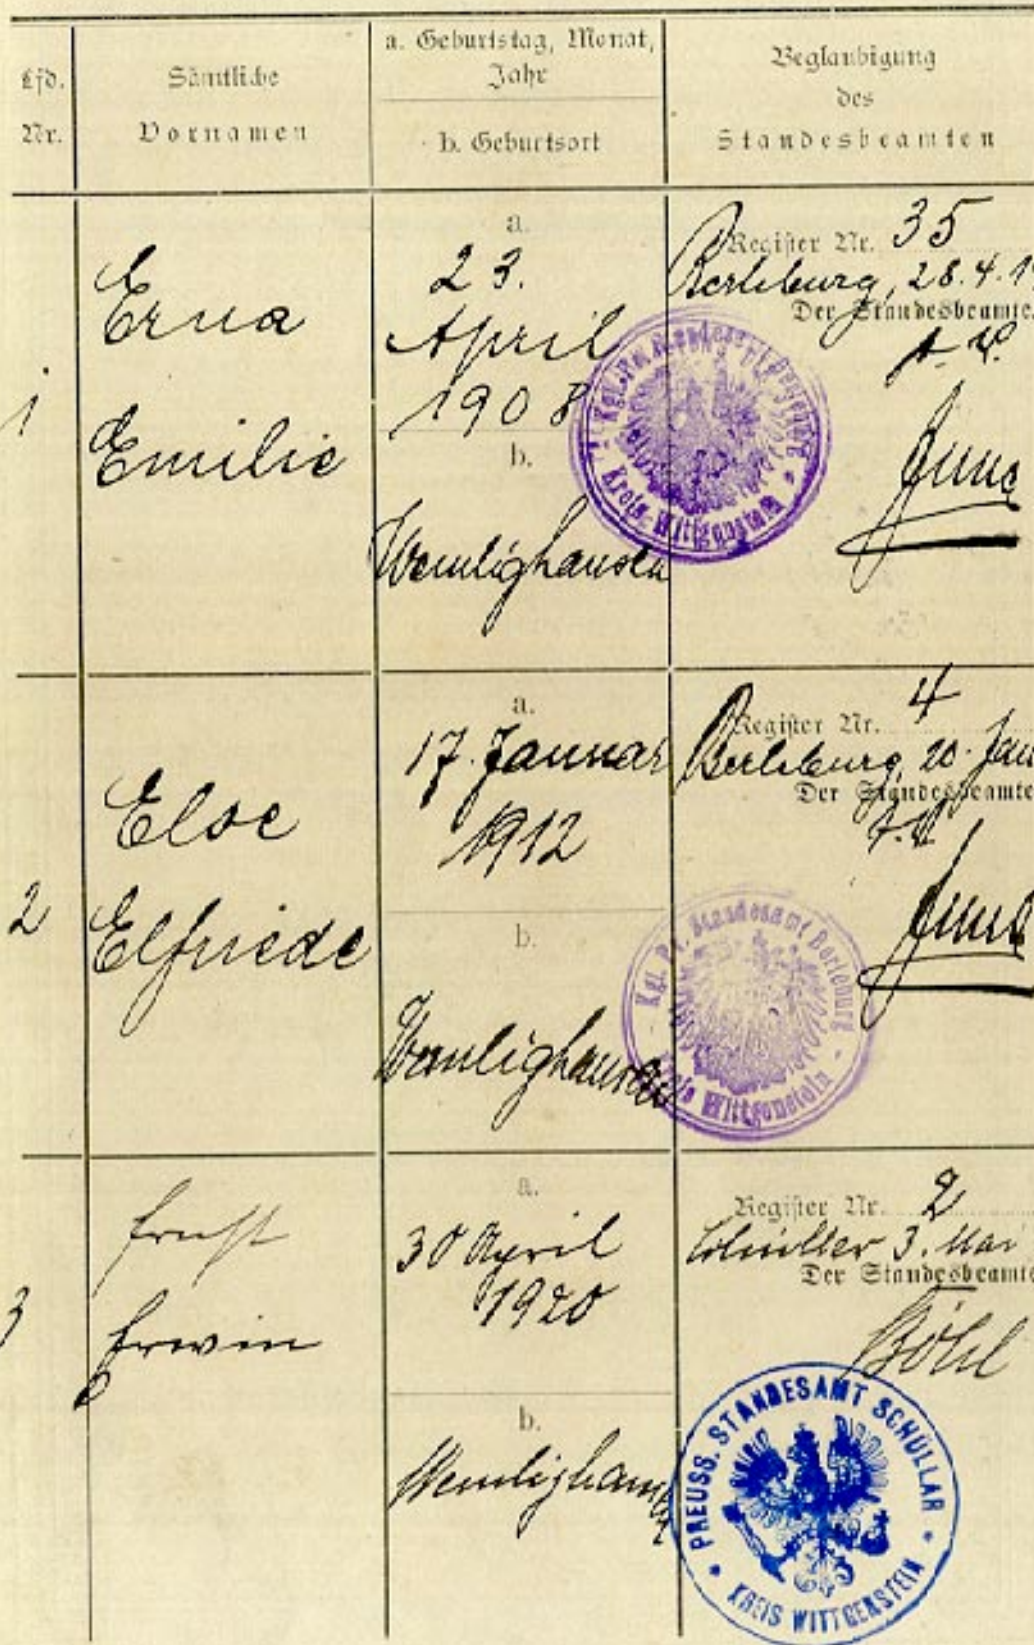 Lfd.
Nr.
Sämtliche
Vornamen
a. Geburtstag, Monat,
Jahr
b. Geburtsort
Beglaubigung
des
Standesbeamten
1
Erna
Emilie
a.
23.
April
1908
b.
Wemlighausen
Register Nr. 35
Berleburg, 28.4.1
Der Standesbeamte
Kreis Wittgenstein
2
Else
Elfriede
a.
17. Januar
1912
b.
Wemlighausen
Register Nr. 4
Berleburg, 20. Jan
Der Standesbeamte
Kgl. Pr. Standesamt Berleburg
Kreis Wittgenstein
3
Ernst
Erwin
a.
30 April
1920
b.
Wemlighausen
Register Nr. 2
Schüllar 3. Mai
Der Standesbeamte
PREUSS. STANDESAMT SCHÜLLAR
KREIS WITTGENSTEIN